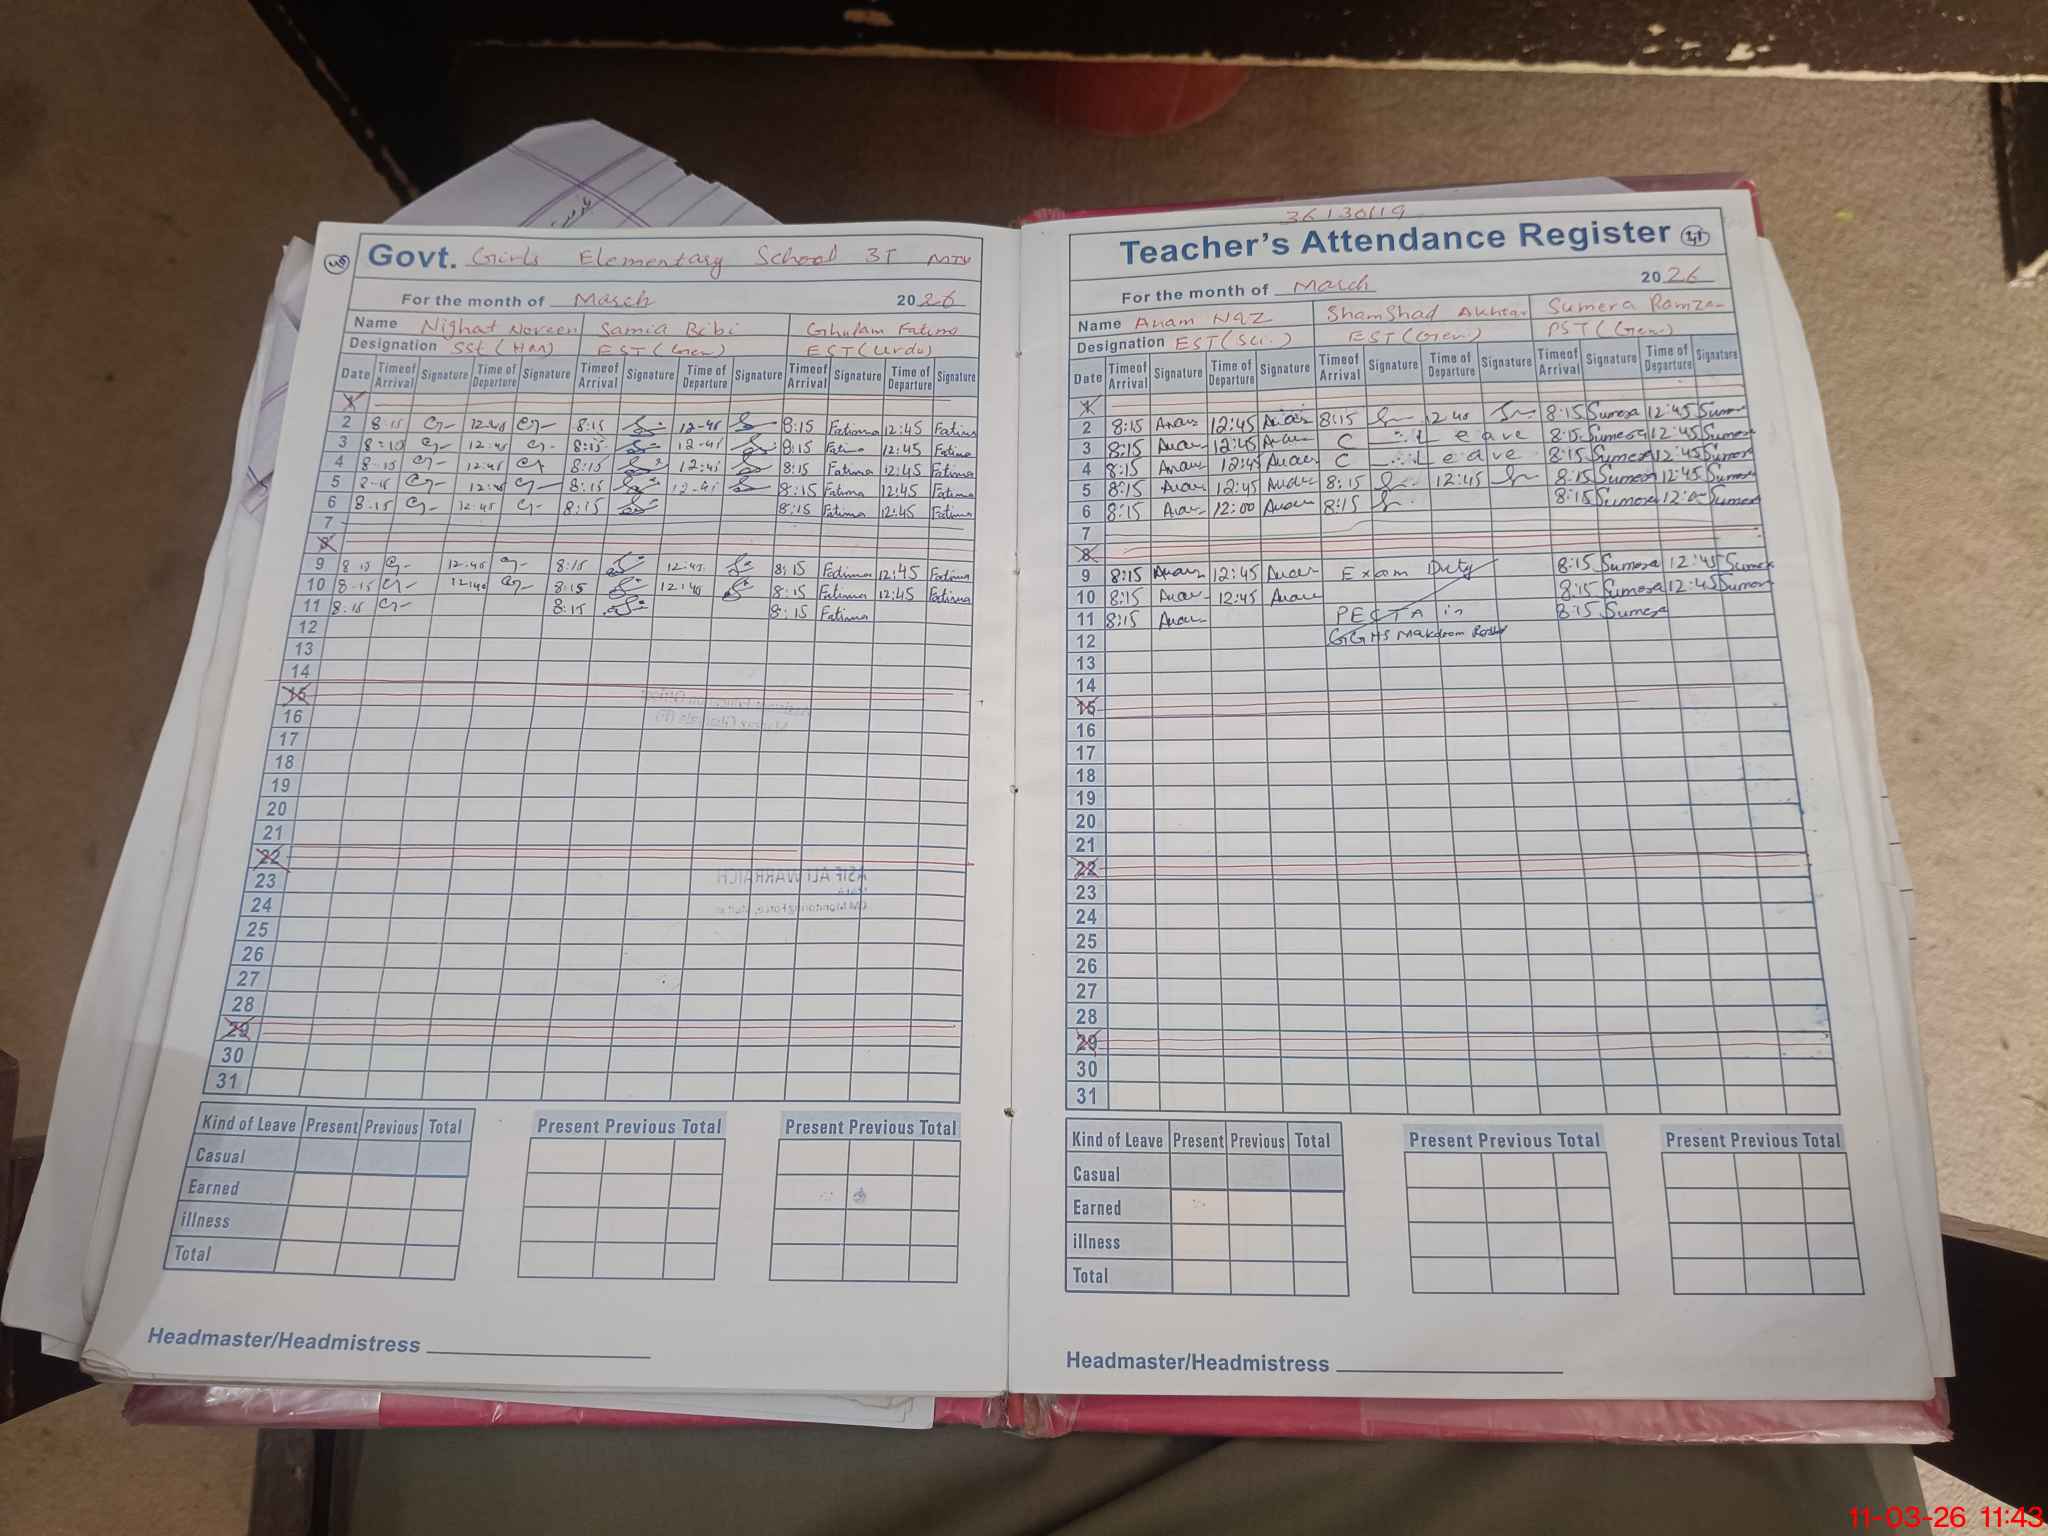 Govt. Girls Elementary School 3T MTN
For the month of March 2026
Name Nighat Noreen Samia Bibi Ghulam Fatima
Designation SSt (Hm) EST (Gen) EST (Urdu)
Date Time of Arrival Signature Time of Departure Signature Time of Arrival Signature Time of Departure Signature Time of Arrival Signature Time of Departure Signature
1
2 8:15 12:45 8:15 12-45 8:15 Fatima 12:45 Fatima
3 8:10 12:45 8:15 12-45 8:15 Fatima 12:45 Fatima
4 8-15 12:45 8:15 12:45 8:15 Fatima 12:45 Fatima
5 8-15 12:45 8:15 12-45 8:15 Fatima 12:45 Fatima
6 8-15 12-45 8:15 8:15 Fatima 12:45 Fatima
7
8
9 8 15 12-45 8:15 12:45 8:15 Fatima 12:45 Fatima
10 8-15 12:40 8:15 12:40 8:15 Fatima 12:45 Fatima
11 8:15 8:15 8:15 Fatima
12
13
14
15
16
17
18
19
20
21
22
23
24
25
26
27
28
29
30
31
Kind of Leave Present Previous Total Present Previous Total Present Previous Total
Casual
Earned
illness
Total
Headmaster/Headmistress
36130119
Teacher's Attendance Register 41
For the month of March 2026
Name Anam Naz Shamshad Akhtar Sumera Ramzan
Designation EST (Sci.) EST (Gen.) PST (Gen.)
Date Time of Arrival Signature Time of Departure Signature Time of Arrival Signature Time of Departure Signature Time of Arrival Signature Time of Departure Signature
1
2 8:15 Anam 12:45 Anam 8:15 12 45 8:15 Sumera 12:45 Sumera
3 8:15 Anam 12:45 Anam C Leave 8:15 Sumera 12:45 Sumera
4 8:15 Anam 12:45 Anam C Leave 8:15 Sumera 12:45 Sumera
5 8:15 Anam 12:45 Anam 8:15 12:45 8:15 Sumera 12:45 Sumera
6 8:15 Anam 12:00 Anam 8:15 8:15 Sumera Sumera
7
8
9 8:15 Anam 12:45 Anam Exam Duty 8:15 Sumera 12:45 Sumera
10 8:15 Anam 12:45 Anam 8:15 Sumera 12:45 Sumera
11 8:15 Anam PECTA in 8:15 Sumera
12 GGHS Makdoom
13
14
15
16
17
18
19
20
21
22
23
24
25
26
27
28
29
30
31
Kind of Leave Present Previous Total Present Previous Total Present Previous Total
Casual
Earned
illness
Total
Headmaster/Headmistress
11-03-26 11:43